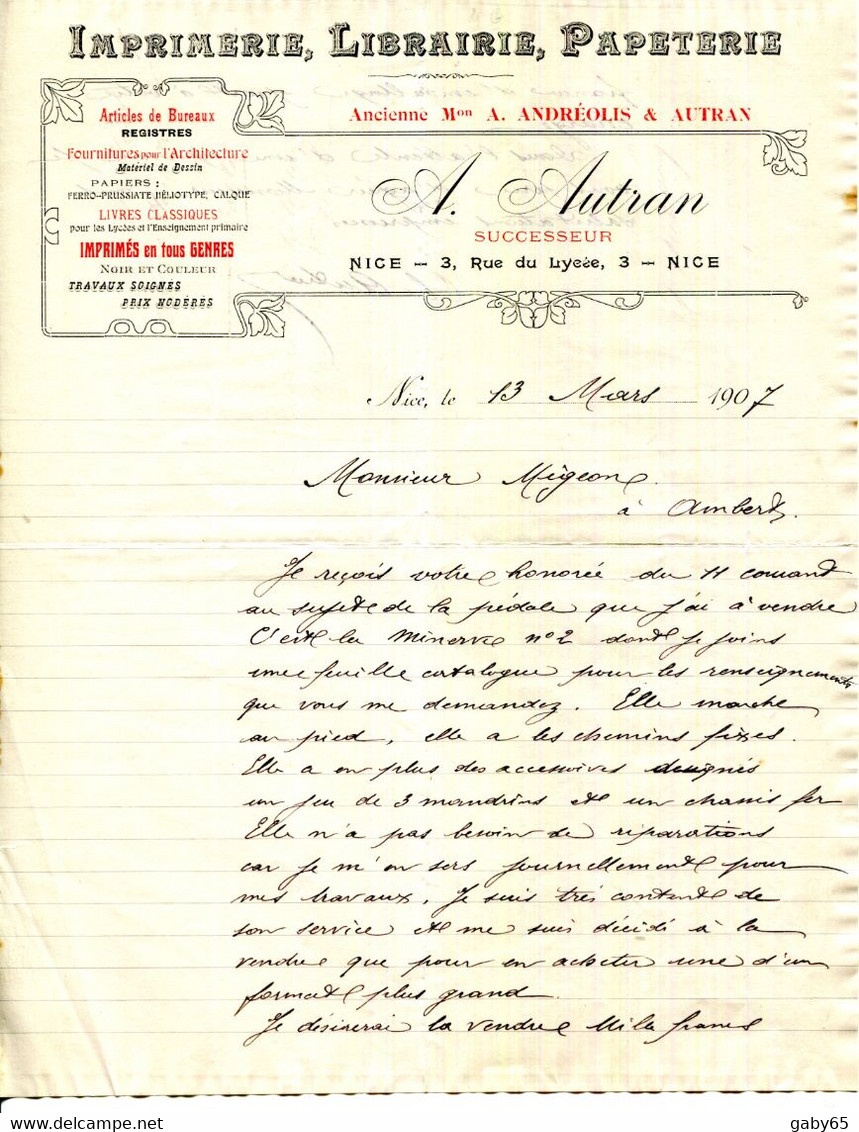 IMPRIMERIE, LIBRAIRIE, PAPETERIE
Ancienne Mon A. ANDRÉOLIS & AUTRAN
Articles de Bureaux
REGISTRES
Fournitures pour l'Architecture
Matériel de Dessin
PAPIERS :
FERRO-PRUSSIATE HÉLIOTYPE, CALQUE
LIVRES CLASSIQUES
pour les Lycées et l'Enseignement primaire
IMPRIMÉS en tous GENRES
NOIR ET COULEUR
TRAVAUX SOIGNÉS
PRIX MODÉRÉS
A. Autran
SUCCESSEUR
NICE — 3, Rue du Lycée, 3 — NICE
Nice, le 13 Mars 1907
Monsieur Migeon
à Ambert.
Je reçois votre honorée du 11 courant
au sujet de la pédale que j'ai à vendre
C'est la Minerve n° 2 dont je joins
une feuille catalogue pour les renseignements
que vous me demandez. Elle marche
au pied, elle a les chemins fixes.
Elle a en plus des accessoires designés
un jeu de 3 mandrins et un chassis fer
Elle n'a pas besoin de réparations
car je m'en sers journellement pour
mes travaux. Je suis très content de
son service et me suis décidé à la
vendre que pour en acheter une d'un
format plus grand.
Je désirerai la vendre Mille francs
gaby65